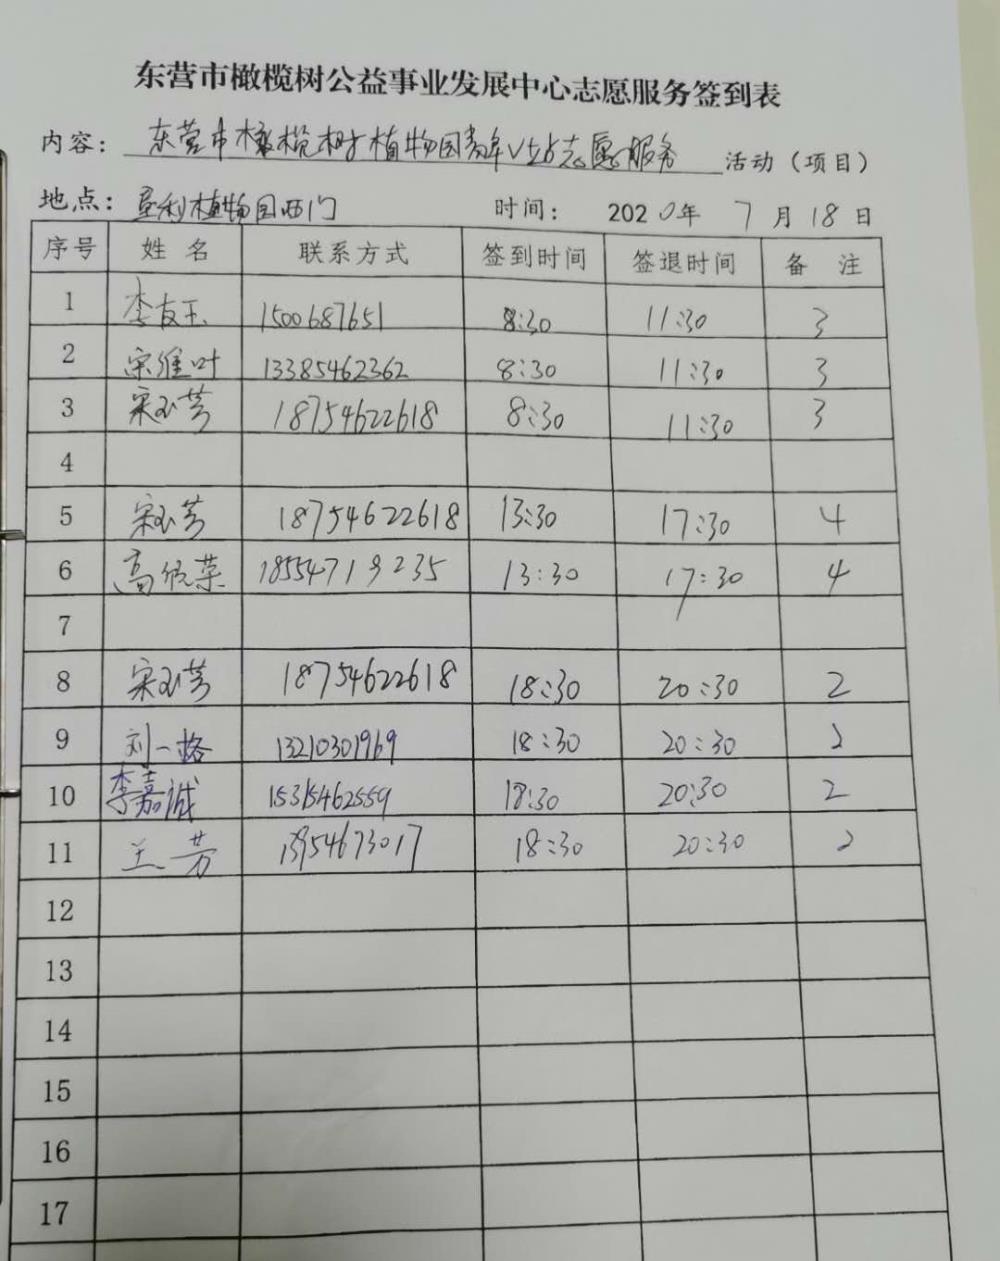 东营市橄榄树公益事业发展中心志愿服务签到表
内容：东营市橄榄树植物园青年V站志愿服务 活动（项目）
地点：垦利植物园西门 时间： 2020年 7月18日
序号 姓名 联系方式 签到时间 签退时间 备注
1 李友玉 1500687651 8:30 11:30 3
2 宋维叶 13385462362 8:30 11:30 3
3 宋玉芳 18754622618 8:30 11:30 3
4
5 宋玉芳 18754622618 13:30 17:30 4
6 高 荣 18554719235 13:30 17:30 4
7
8 宋玉芳 18754622618 18:30 20:30 2
9 刘一格 13210301969 18:30 20:30 2
10 李嘉诚 15315462559 18:30 20:30 2
11 兰芳 13954673017 18:30 20:30 2
12
13
14
15
16
17